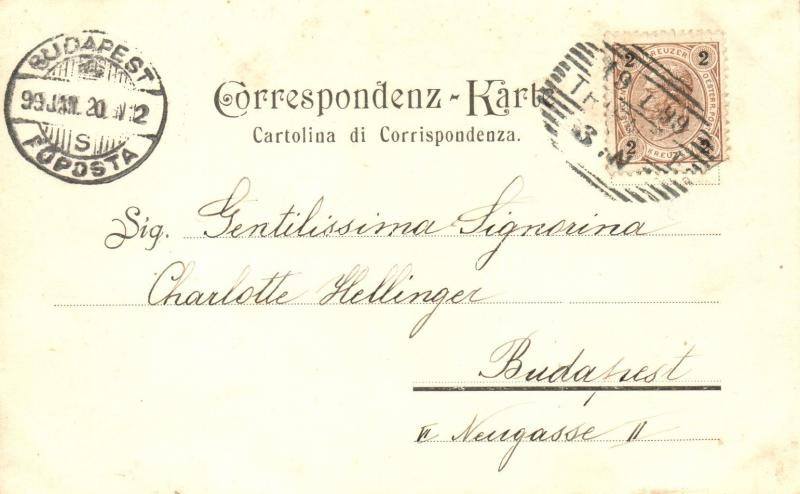 BUDAPEST
99 JAN. 20. N 2
S
FŐPOSTA
Correspondenz-Karte
Cartolina di Corrispondenza.
2 KREUZER 2
2 KREUZER 2
19 1 99
Sig. Gentilissima Signorina
Charlotte Hellinger
Budapest
Neugasse 11